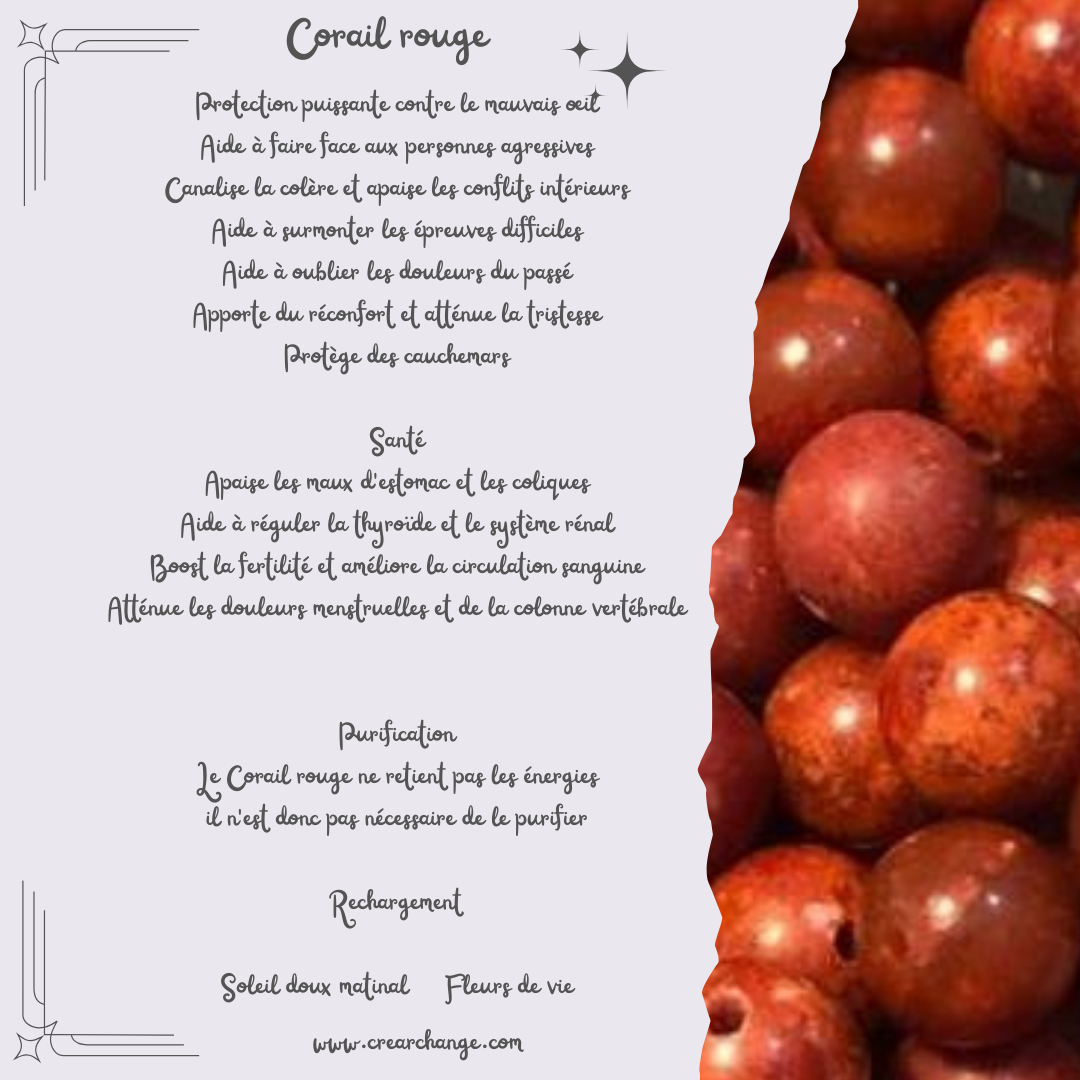 Corail rouge
Protection puissante contre le mauvais œil
Aide à faire face aux personnes agressives
Canalise la colère et apaise les conflits intérieurs
Aide à surmonter les épreuves difficiles
Aide à oublier les douleurs du passé
Apporte du réconfort et atténue la tristesse
Protège des cauchemars
Santé
Apaise les maux d'estomac et les coliques
Aide à réguler la thyroïde et le système rénal
Boost la fertilité et améliore la circulation sanguine
Atténue les douleurs menstruelles et de la colonne vertébrale
Purification
Le Corail rouge ne retient pas les énergies
il n'est donc pas nécessaire de le purifier
Rechargement
Soleil doux matinal Fleurs de vie
www.crearchange.com